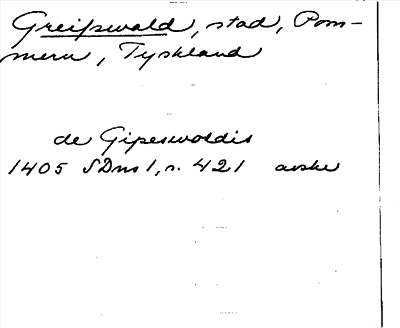 Greifswald, stad, Pom-
mern, Tyskland
de Gipeswoldis
1405 SDns 1, s. 421 avskr